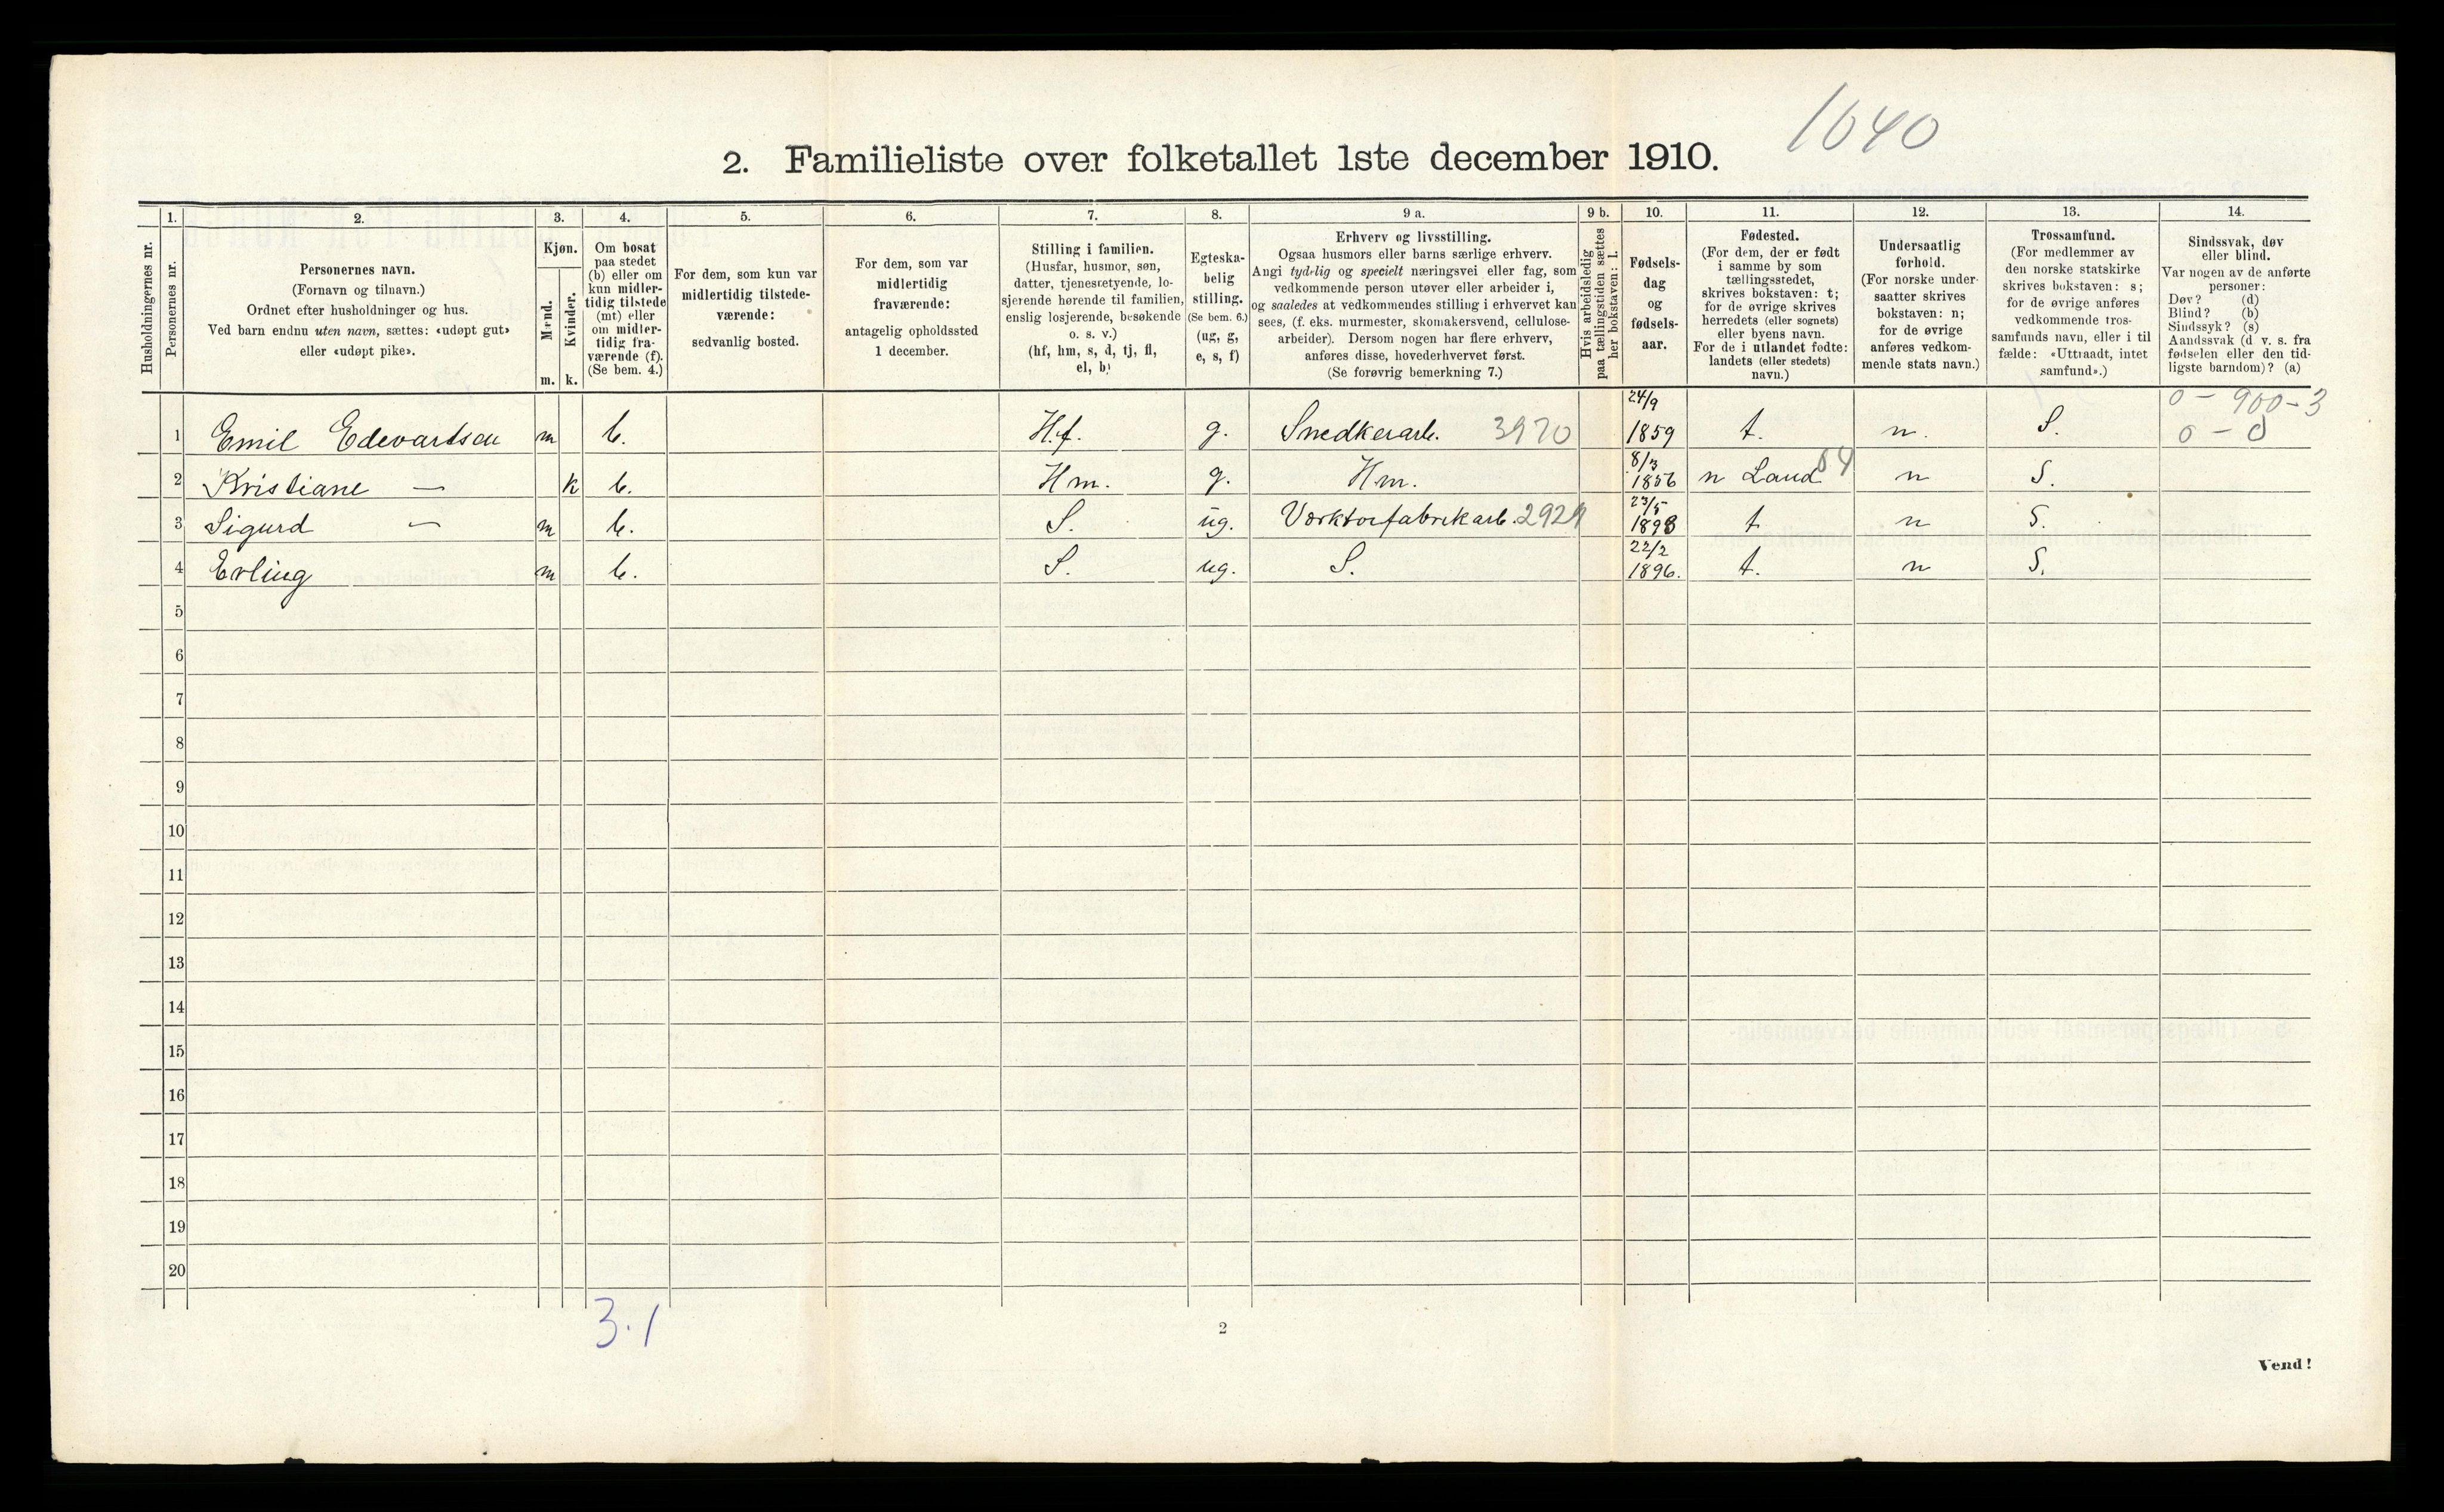 1640
2. Familieliste over folketallet 1ste december 1910.
Husholdningernes nr.
1.
Personernes nr.
2.
Personernes navn.
(Fornavn og tilnavn.)
Ordnet efter husholdninger og hus.
Ved barn endnu uten navn, sættes: «udøpt gut»
eller «udøpt pike».
3.
Kjøn.
Mænd.
m.
Kvinder.
k.
4.
Om bosat
paa stedet
(b) eller om
kun midler-
tidig tilstede
(mt) eller
om midler-
tidig fra-
værende (f).
(Se bem. 4.)
5.
For dem, som kun var
midlertidig tilstede-
værende:
sedvanlig bosted.
6.
For dem, som var
midlertidig
fraværende:
antagelig opholdssted
1 december.
7.
Stilling i familien.
(Husfar, husmor, søn,
datter, tjenestetyende, lo-
sjerende hørende til familien,
enslig losjerende, besøkende
o. s. v.)
(hf, hm, s, d, tj, fl,
el, b)
8.
Egteska-
belig
stilling.
(Se bem. 6.)
(ug, g,
e, s, f)
9 a.
Erhverv og livsstilling.
Ogsaa husmors eller barns særlige erhverv.
Angi tydelig og specielt næringsvei eller fag, som
vedkommende person utøver eller arbeider i,
og saaledes at vedkommendes stilling i erhvervet kan
sees, (f. eks. murmester, skomakersvend, cellulose-
arbeider). Dersom nogen har flere erhverv,
anføres disse, hovederhvervet først.
(Se forøvrig bemerkning 7.)
9 b.
Hvis arbeidsledig
paa tællingstiden sættes
her bokstaven: l.
10.
Fødsels-
dag
og
fødsels-
aar.
11.
Fødested.
(For dem, der er født
i samme by som
tællingsstedet,
skrives bokstaven: t;
for de øvrige skrives
herredets (eller sognets)
eller byens navn.
For de i utlandet fødte:
landets (eller stedets)
navn.)
12.
Undersaatlig
forhold.
(For norske under-
saatter skrives
bokstaven: n;
for de øvrige
anføres vedkom-
mende stats navn.)
13.
Trossamfund.
(For medlemmer av
den norske statskirke
skrives bokstaven: s;
for de øvrige anføres
vedkommende tros-
samfunds navn, eller i til
fælde: «Uttraadt, intet
samfund».)
14.
Sindssvak, døv
eller blind.
Var nogen av de anførte
personer:
Døv? (d)
Blind? (b)
Sindssyk? (s)
Aandssvak (d v. s. fra
fødselen eller den tid-
ligste barndom)? (a)
0 – 900 – 3
1 Emil Edevartsen m b. H.f. g. Snedkerarb. 3970 24/9 1859 t. n. S. 0 – 0
2 Kristiane — k b. Hm. g. Hm. 8/3 1856 n Land 64 n S.
3 Sigurd — m b. S. ug. Værktøifabrikarb. 2929 23/5 1893 t. n S.
4 Erling m b. S. ug. S. 22/2 1896. t. n S.
5
6
7
8
9
10
11
12
13
14
15
16
17
18
19
20
3·1
2
Vend!